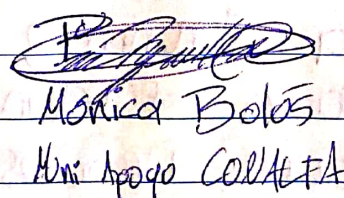 Mónica Bolós
Muni Apoyo CONALFA